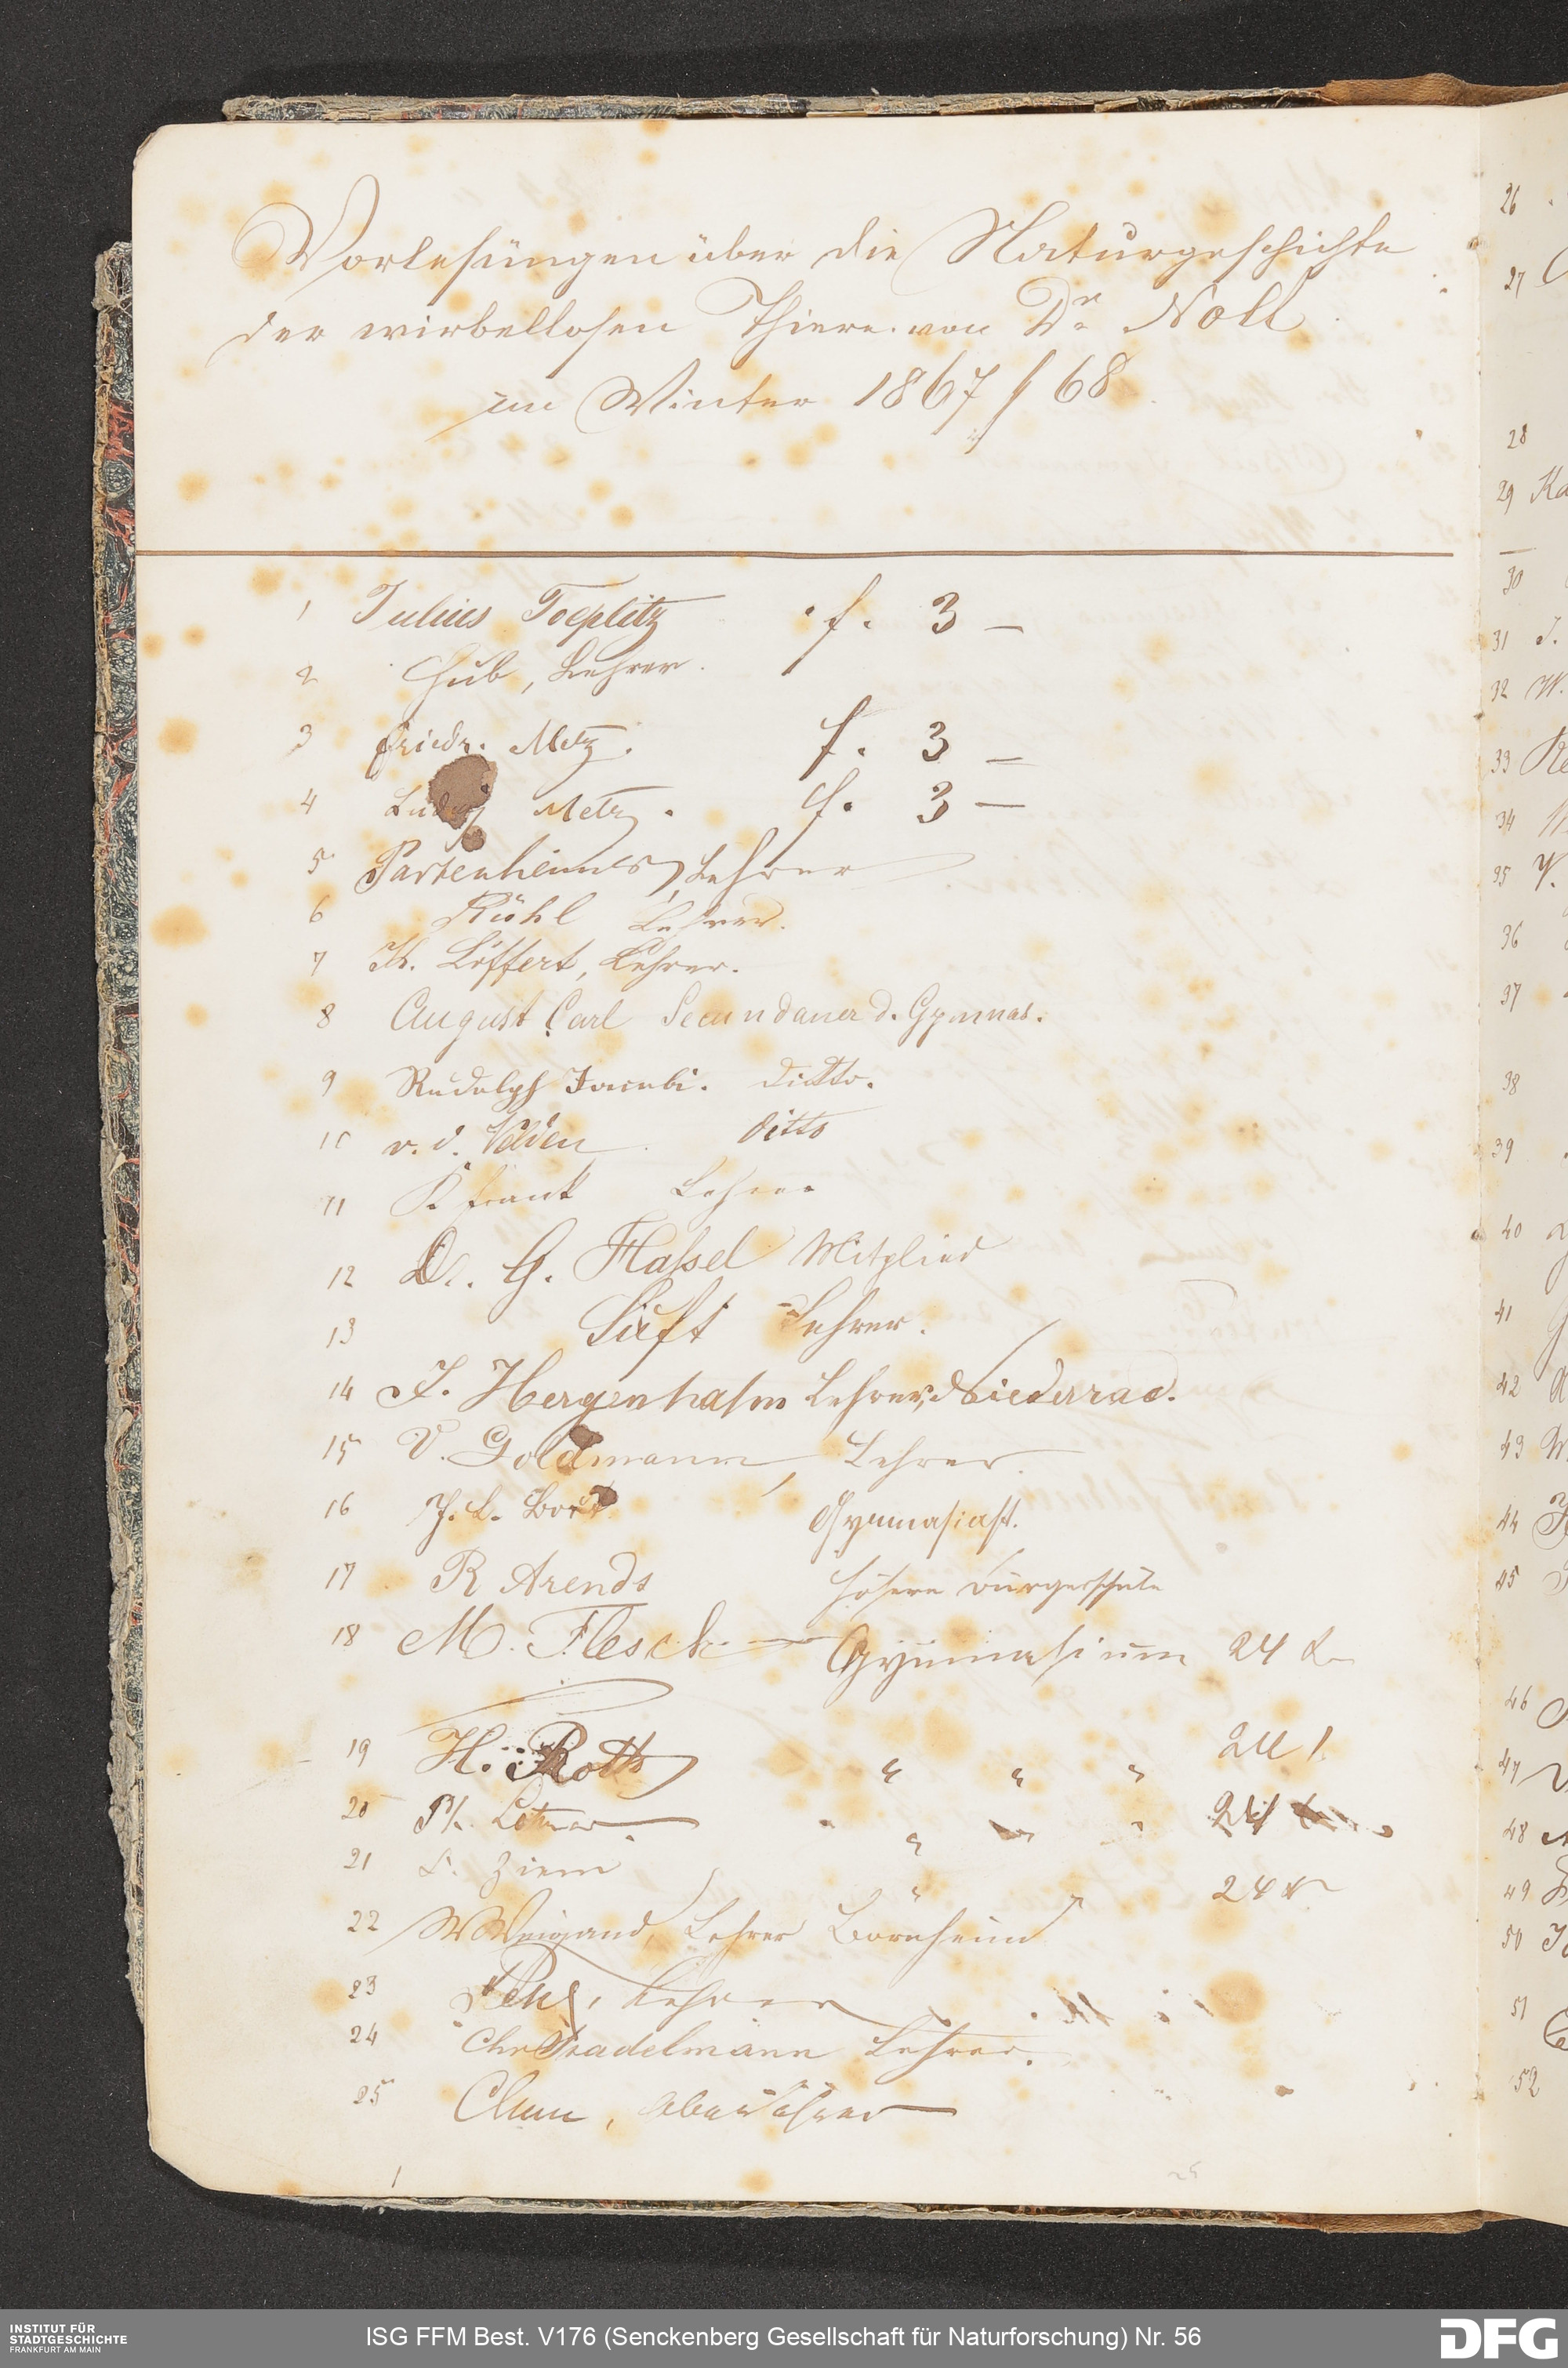 Vorlesungen über die Naturgeschichte
der wirbellosen Thiere von Dr Noll
im Winter 1867/68
1 Julius Toeplitz f. 3 —
2 Hub, Lehrer.
3 Friedr. Metz. f. 3 —
4 Ludwig Metz. f. 3 —
5 Partenheimer, Lehrer
6 Rühl Lehrer.
7 Th. Löffert, Lehrer.
8 August Carl Secundaner d. Gymnas.
9 Rudolph Jacobi. ditto.
10 v. d. Velden ditto
11 K Frank Lehrer
12 Dr. G. Haßel Mitglied
13 Lehrer.
14 J. Hergenhahn Lehrer, Niederrad.
15 V. Goldmann, Lehrer.
16 J. L. Gymnasiast.
17 R Arends höhere Bürgerschule
18 M. Flesch — Gymnasium 24
19 H. Roth " " " 24
20 Ph. " 24
21 Ziem " 24
22 W Weigand, Lehrer Bornheim
23 Lehrer
24 Chr Stradelmann Lehrer.
25 Chun,
1
25
26
27
28
29 Ka
30
31 J.
32 W.
33 Re
34
35 V.
36
37
38
39
40
41
42
43 W
44
45
46
47
48
49
50
51
52
INSTITUT FÜR
STADTGESCHICHTE
FRANKFURT AM MAIN
ISG FFM Best. V176 (Senckenberg Gesellschaft für Naturforschung) Nr. 56
DFG